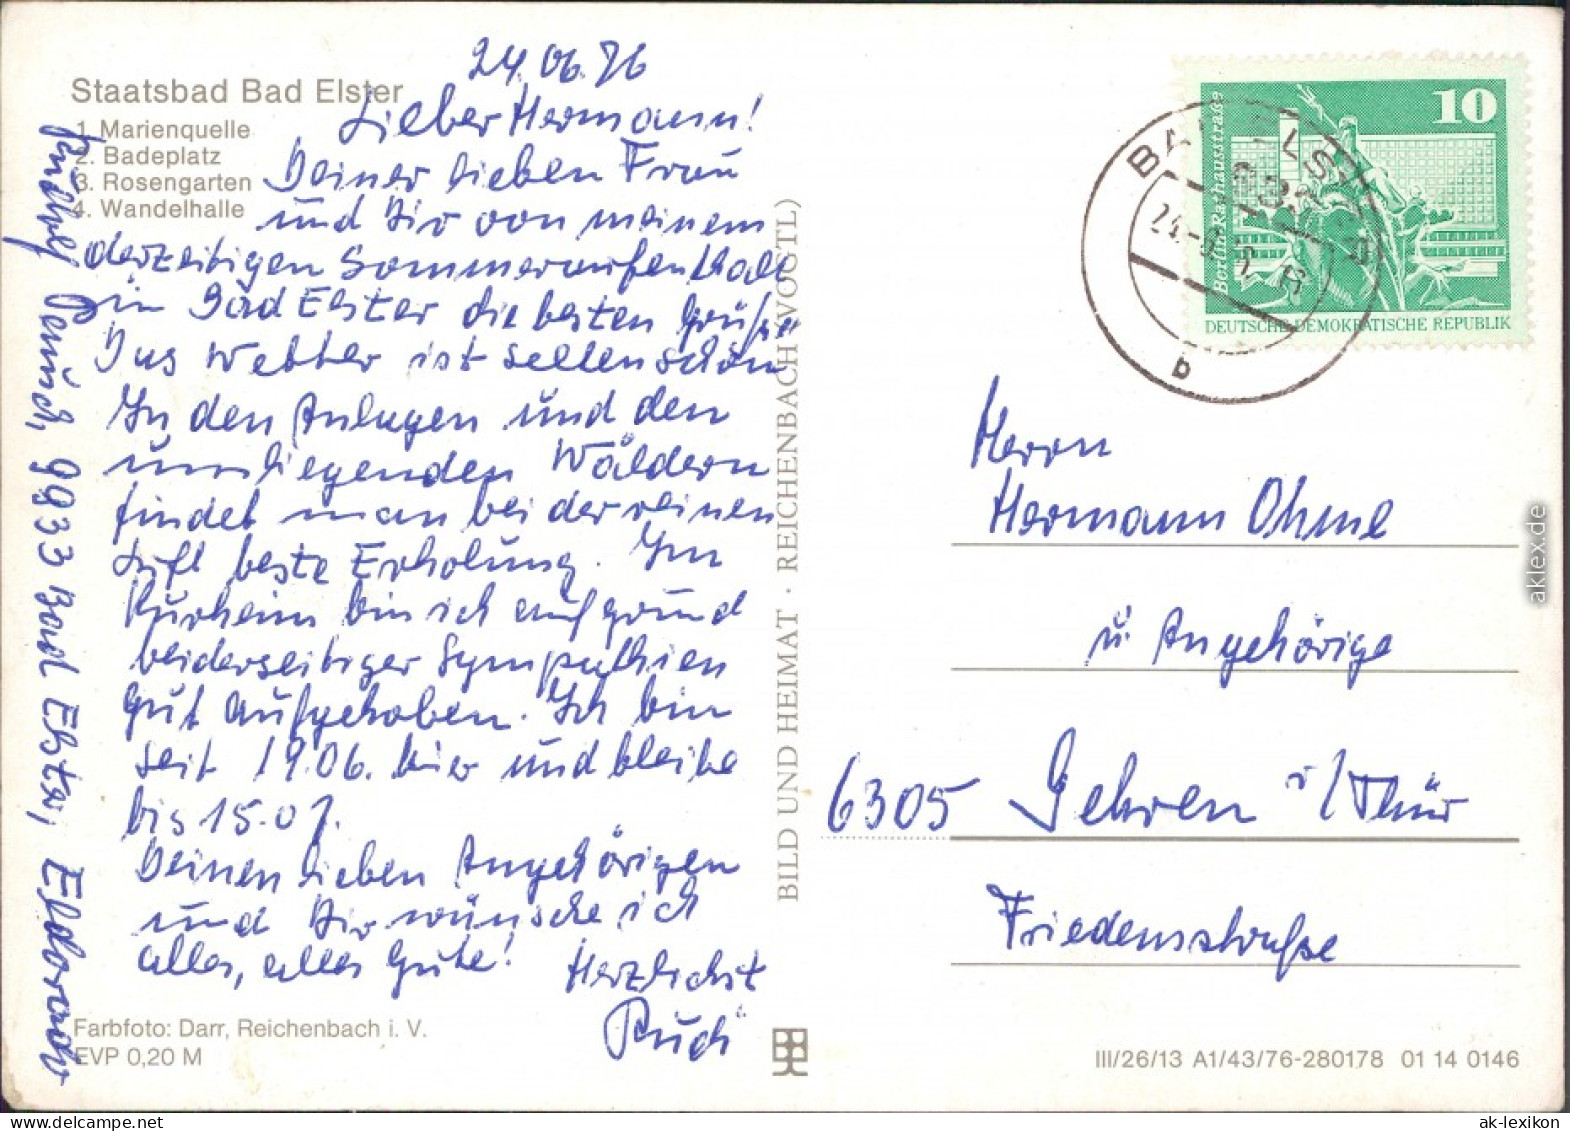 Staatsbad Bad Elster
1. Marienquelle
2. Badeplatz
3. Rosengarten
4. Wandelhalle
24.06.76
Lieber Hermann!
Deiner lieben Frau
und Dir von meinem
derzeitigen Sommeraufenthalt
in Bad Elster die besten Grüße
Das Wetter ist selten schön
In den Anlagen und den
umliegenden Wäldern
findet man bei der reinen
Luft beste Erholung. Im
Kurheim bin ich aufgrund
beiderseitiger Sympathien
gut aufgehoben. Ich bin
seit 19.06. hier und bleibe
bis 15.07.
Deinen lieben Angehörigen
und Dir wünsche ich
alles, alles Gute!
Herzlichst
Rudi
Rudolf 9933 Bad Elster, Eldorado
Farbfoto: Darr, Reichenbach i. V.
EVP 0,20 M
BILD UND HEIMAT · REICHENBACH (VOGTL)
10
Berlin, Rathausstraße
DEUTSCHE DEMOKRATISCHE REPUBLIK
BAD ELSTER
b
Herrn
Hermann Ohme
u. Angehörige
6305 Gehren i/Thür
Friedensstraße
III/26/13 A1/43/76-280178 01 14 0146
aklex.de
www.ak-lexikon.de